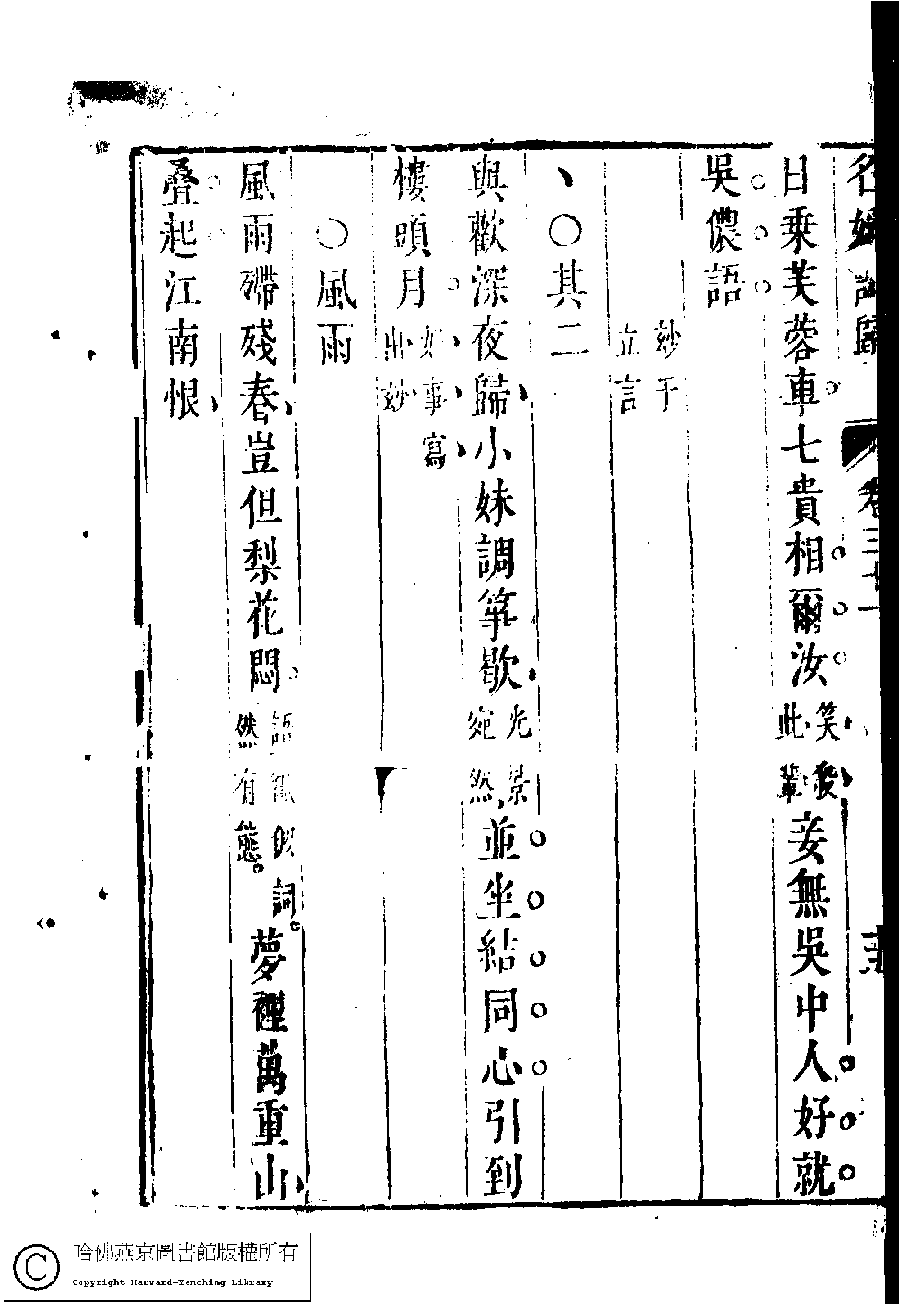 名媛詩歸 卷三十一
日乗芙蓉車七貴相爾汝笑殺此輩妾無吳中人好就
吳儂語妙于立言
、○其二
與歡深夜歸小妹調箏歇光景宛然並坐結同心引到
樓頭月好事寫出妙
○風雨
風雨殢殘春豈但梨花悶語氣似詞然有態夢裡萬重山
疊起江南恨
哈佛燕京圖書館版權所有
Copyright Harvard-Yenching Library